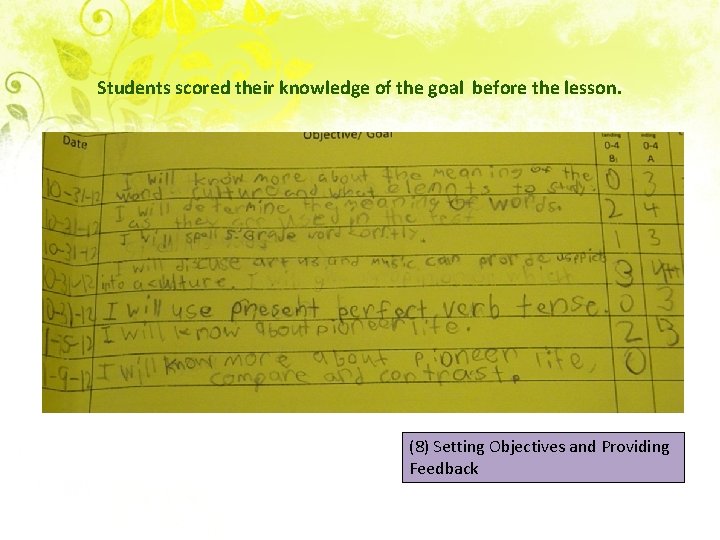 Students scored their knowledge of the goal before the lesson.
Date Objective/ Goal 0-4 0-4
B A
10-31-12 I will know more about the meaning of the 0 3
word culture and what elemnts to study.
10-31-12 I will determine the meaning of words. 2 4
as they are used in the text
10-31-12 I will spell 5 grade word corrtly. 1 3
I will discuse art and music can 3
into a culture. I will
10-31-12 I will use present perfect verb tense. 0 3
I will know about pioneer life. 2
1-9-12 I will know more about pioneer life, 0
compare and contrast.
(8) Setting Objectives and Providing
Feedback